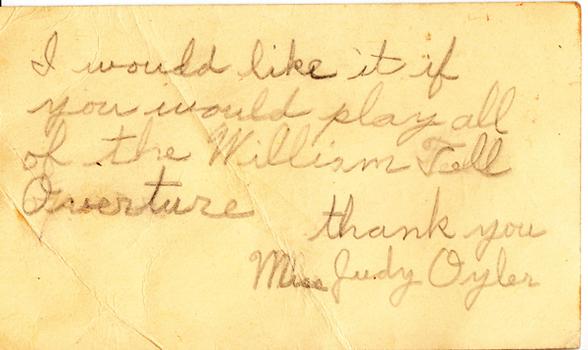 I would like it if
you would play all
of the William Tell
Overture
thank you
Miss Judy Oyler